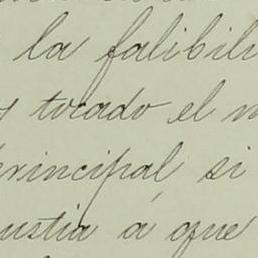 la falibili
tirado el m
principal, si
ustia á que